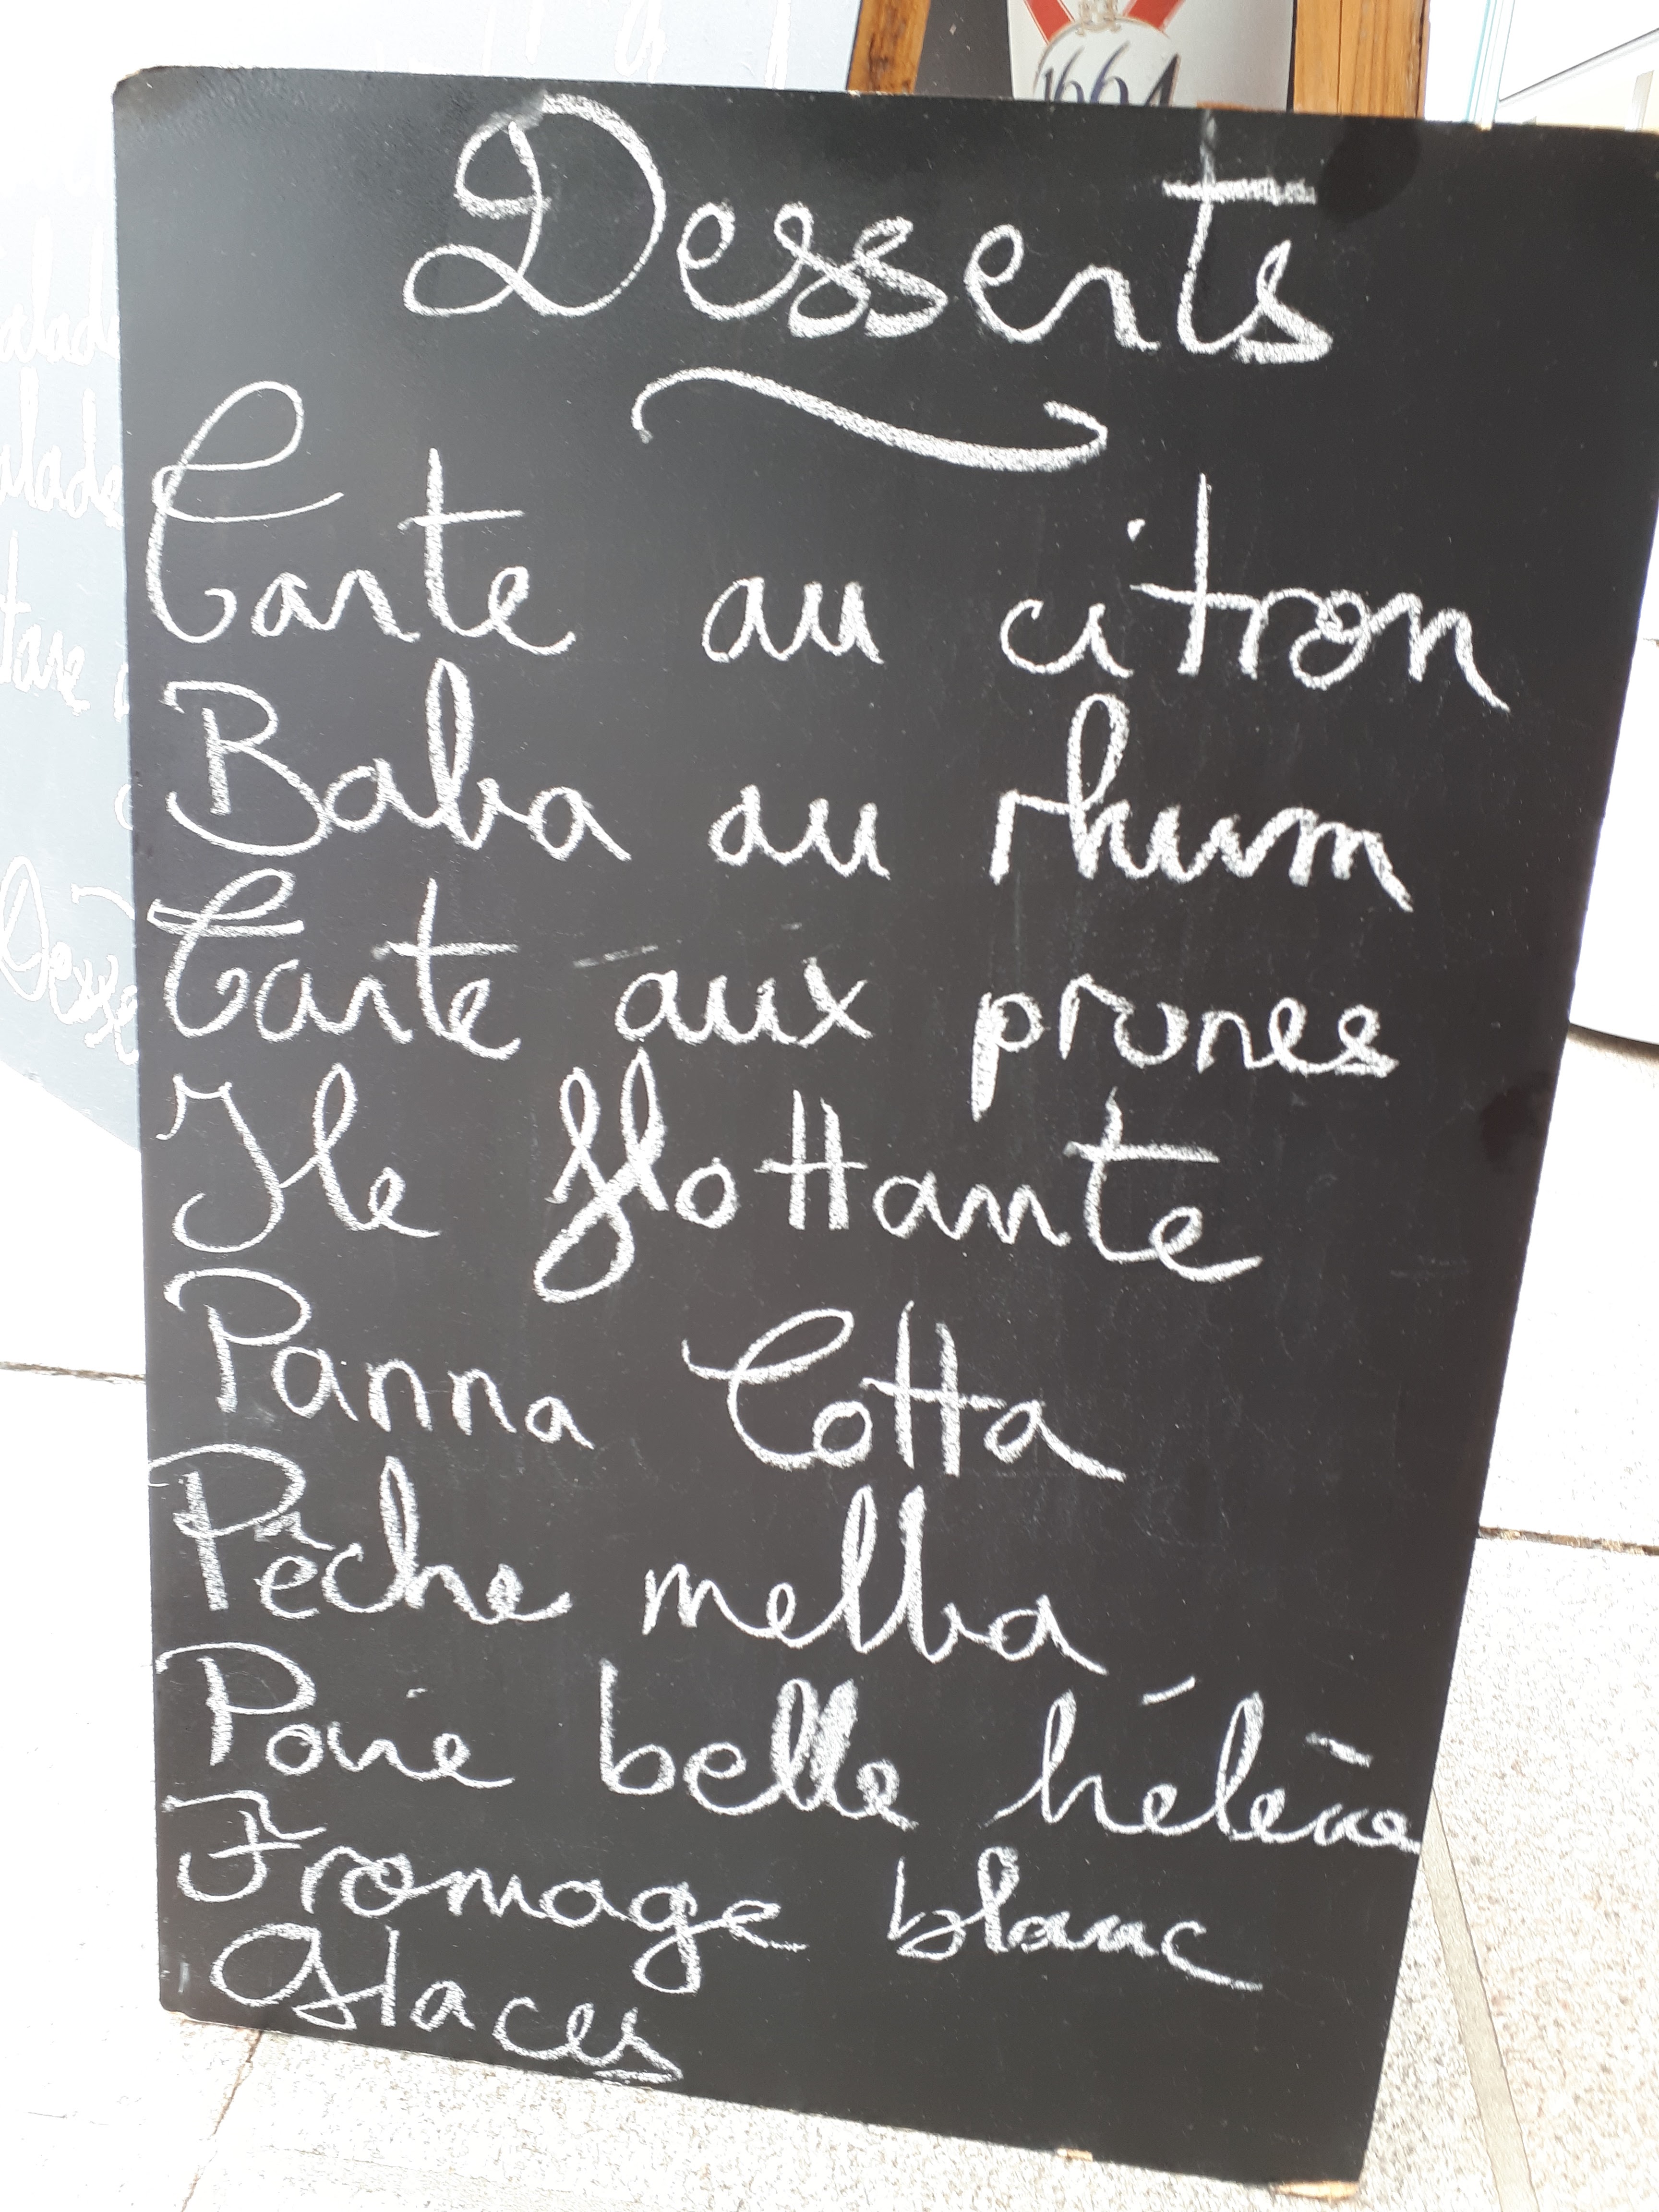 1664
Desserts
Tarte au citron
Baba au rhum
Tarte aux prunes
Ile flottante
Panna Cotta
Pêche melba
Poire belle hélène
Fromage blanc
Glaces